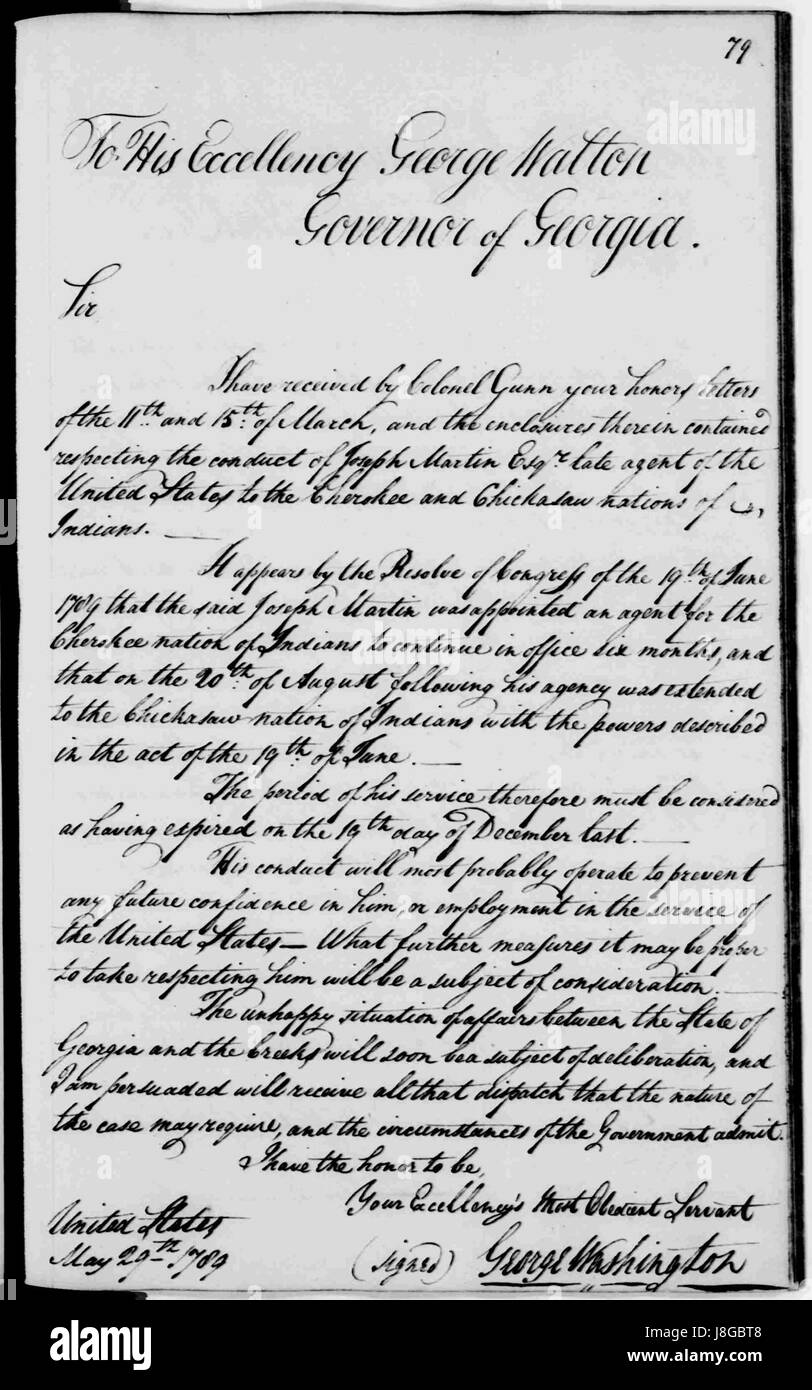 79
To His Eccellency George Walton
Governor of Georgia.
Sir
I have received by Colonel Gunn your honors letters
of the 11th and 15th of March, and the enclosures therein contained
respecting the conduct of Joseph Martin Esqr. late agent of the
United States to the Cherokee and Chickasaw nations of
Indians. —
It appears by the Resolve of Congress of the 19th of June
1789 that the said Joseph Martin was appointed an agent for the
Cherokee nation of Indians to continue in office six months, and
that on the 20th of August following his agency was extended
to the Chickasaw nation of Indians with the powers described
in the act of the 19th of June. —
The period of his service therefore must be considered
as having expired on the 19th day of December last. —
His conduct will most probably operate to prevent
any future confidence in him, or employment in the service of
the United States — What further measures it may be proper
to take respecting him will be a subject of consideration. —
The unhappy situation of affairs between the State of
Georgia and the Creeks will soon be a subject of deliberation, and
I am persuaded will receive all that dispatch that the nature of
the case may require, and the circumstances of the Government admit.
I have the honor to be,
Your Excellency's Most Obedient Servant
United States
May 29th 1789
(signed) George Washington
alamy
alamy
alamy
alamy
alamy
Image ID: J8GBT8
www.alamy.com